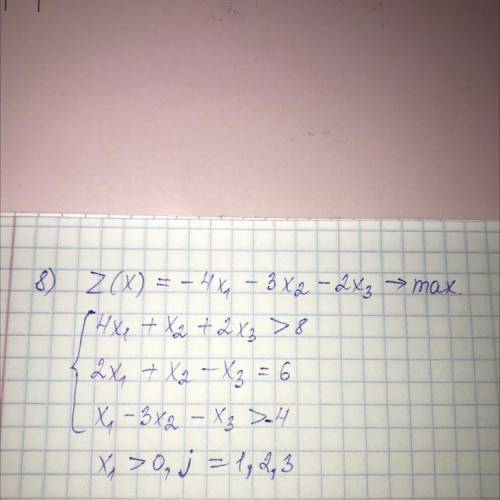 8) Z(X) = -4x₁ - 3x₂ - 2x₃ → max.
4x₁ + x₂ + 2x₃ > 8
2x₁ + x₂ - x₃ = 6
x₁ - 3x₂ - x₃ > -4
x₁ > 0, j = 1,2,3